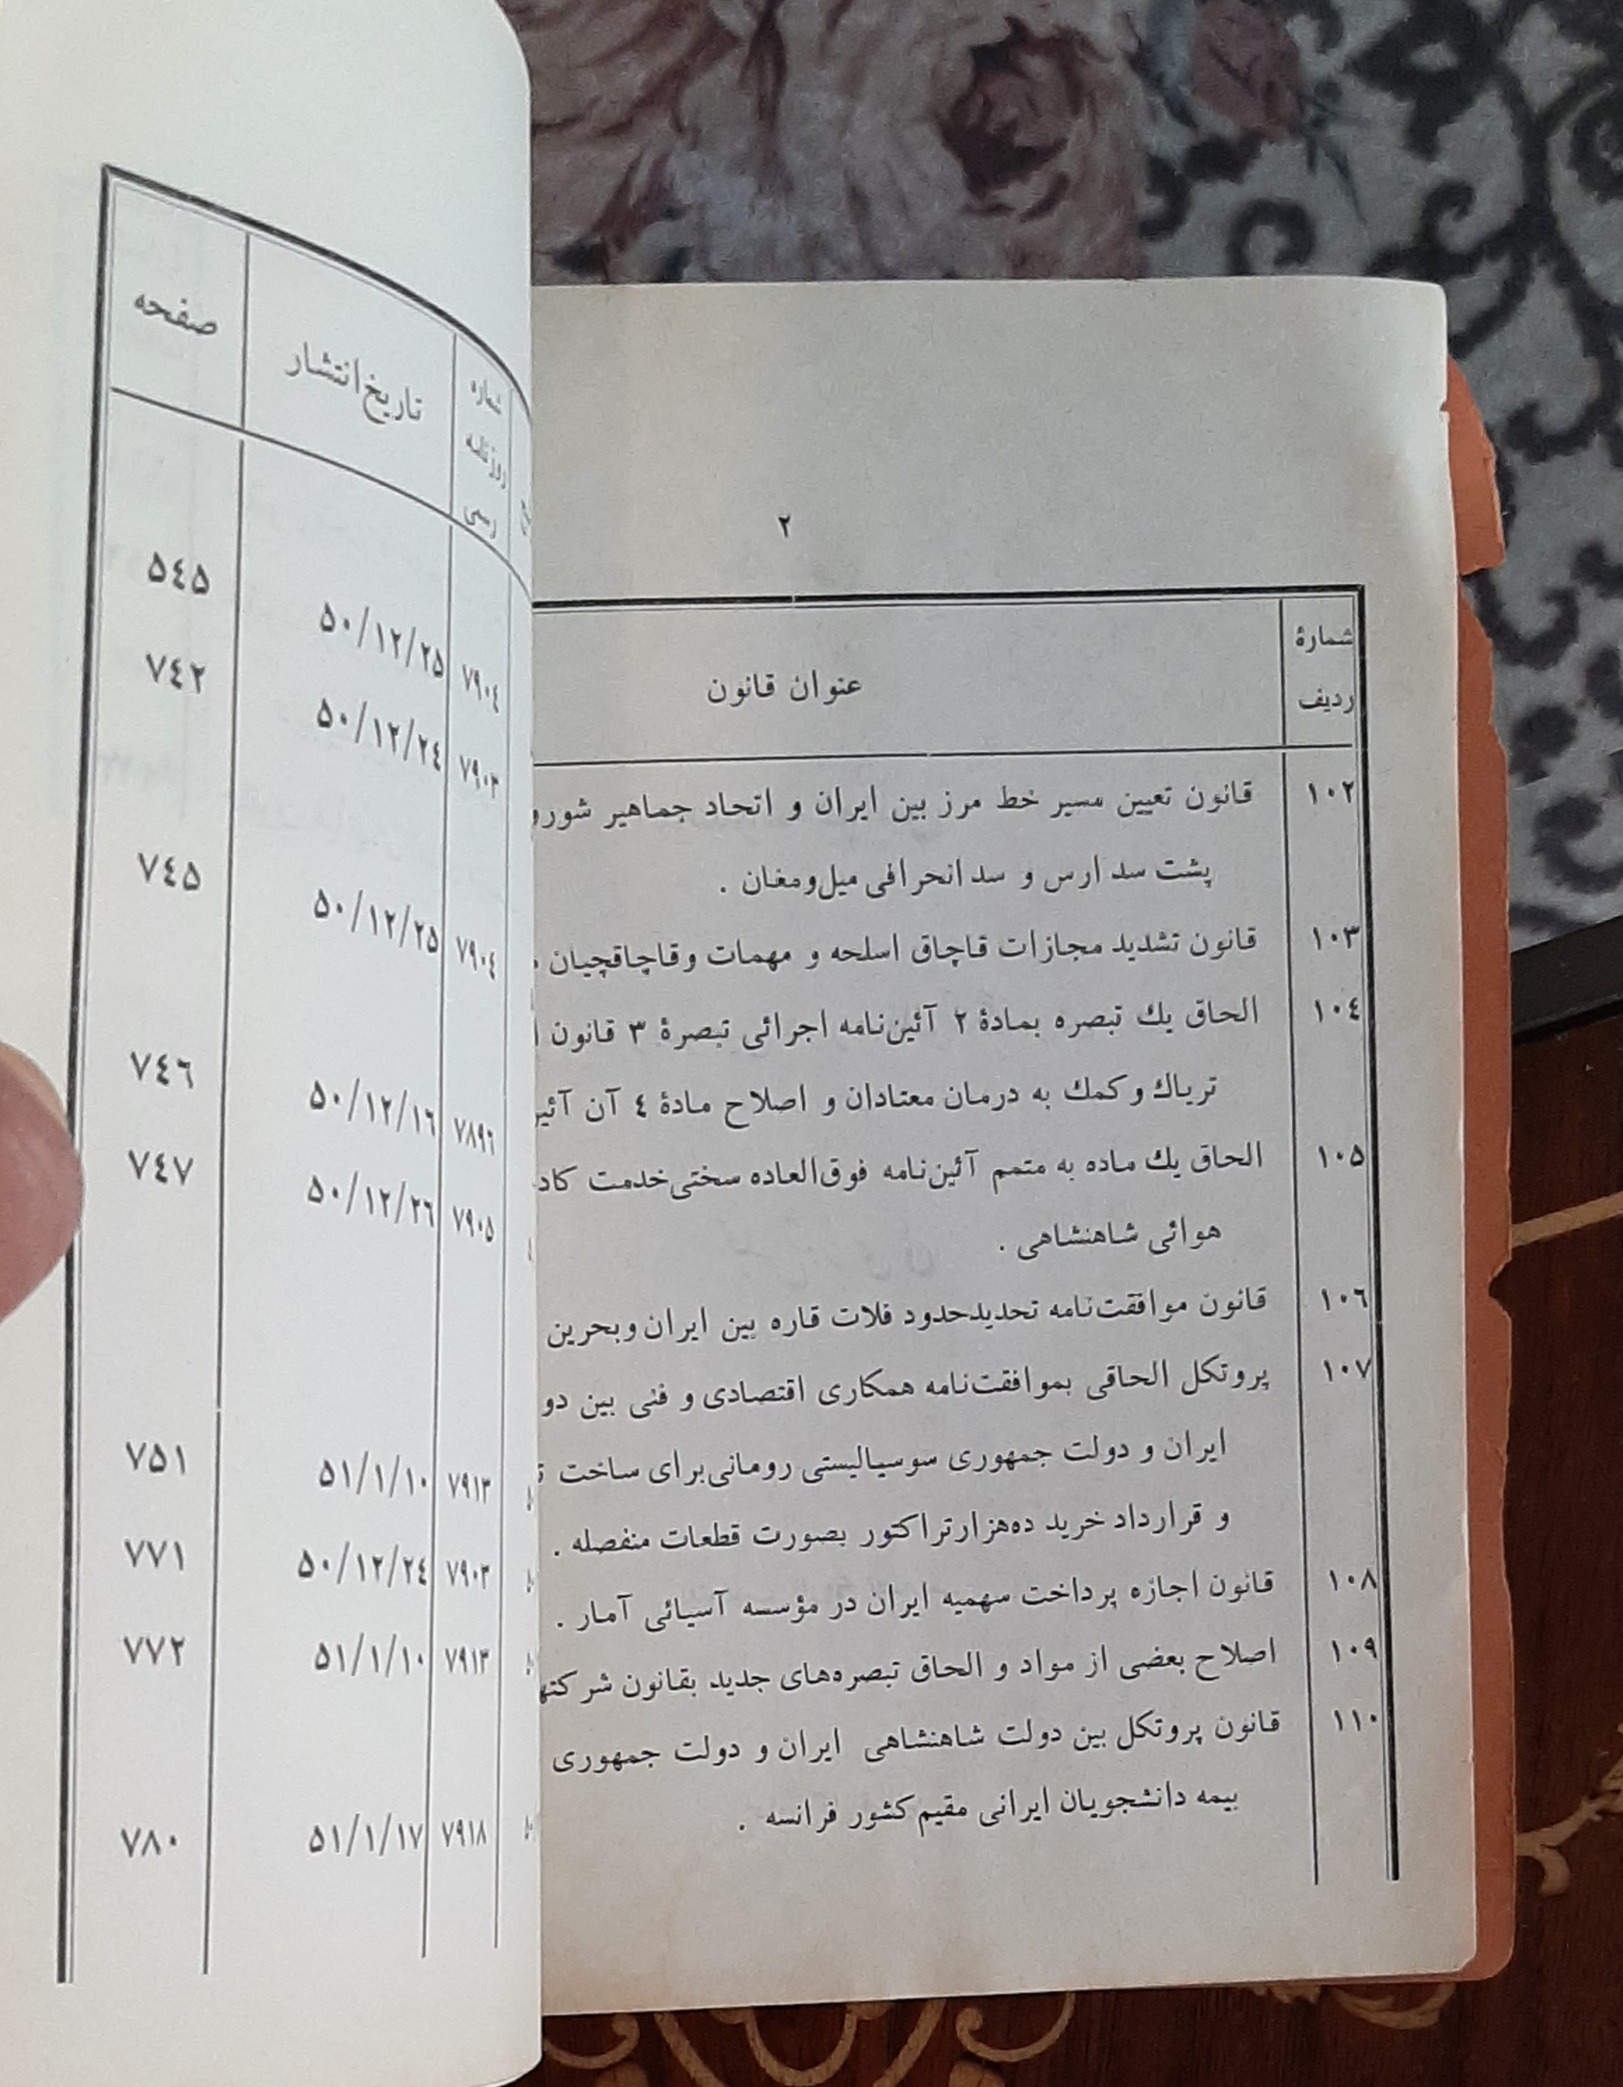 ۲
شمارهٔ
ردیف
عنوان قانون
۱۰۲ قانون تعیین مسیر خط مرز بین ایران و اتحاد جماهیر
پشت سد ارس و سد انحرافی میل‌ومغان .
۱۰۳ قانون تشدید مجازات قاچاق اسلحه و مهمات وقاچاقچیان
۱۰۴ الحاق یك تبصره بمادهٔ ۲ آئین‌نامه اجرائی تبصرهٔ ۳ قانون
تریاك و کمك به درمان معتادان و اصلاح مادهٔ ٤ آن
۱۰۵ الحاق یك ماده به متمم آئین‌نامه فوق‌العاده سختی‌خدمت
هوائی شاهنشاهی .
۱۰٦ قانون موافقت‌نامه تحدیدحدود فلات قاره بین ایران‌وبحرین
۱۰۷ پروتکل الحاقی بموافقت‌نامه همکاری اقتصادی و فنی بین
ایران و دولت جمهوری سوسیالیستی رومانی‌برای ساخت
و قرارداد خرید ده‌هزارتراکتور بصورت قطعات منفصله .
۱۰۸ قانون اجازه پرداخت سهمیه ایران در مؤسسه آسیائی آمار .
۱۰۹ اصلاح بعضی از مواد و الحاق تبصره‌های جدید بقانون
۱۱۰ قانون پروتکل بین دولت شاهنشاهی ایران و دولت جمهوری
بیمه دانشجویان ایرانی مقیم‌کشور فرانسه .
شماره
روزنامه
رسمی
تاریخ‌انتشار
صفحه
۷۹۰٤ ۵۰/۱۲/۲۵ ۵٤۵
۷۹۰۳ ۵۰/۱۲/۲٤ ۷٤۲
۷۹۰٤ ۵۰/۱۲/۲۵ ۷٤۵
۷۸۹٦ ۵۰/۱۲/۱٦ ۷٤٦
۷۹۰۵ ۵۰/۱۲/۲٦ ۷٤۷
۷۹۱۳ ۵۱/۱/۱۰ ۷۵۱
۷۹۰۳ ۵۰/۱۲/۲٤ ۷۷۱
۷۹۱۳ ۵۱/۱/۱۰ ۷۷۲
۷۹۱۸ ۵۱/۱/۱۷ ۷۸۰